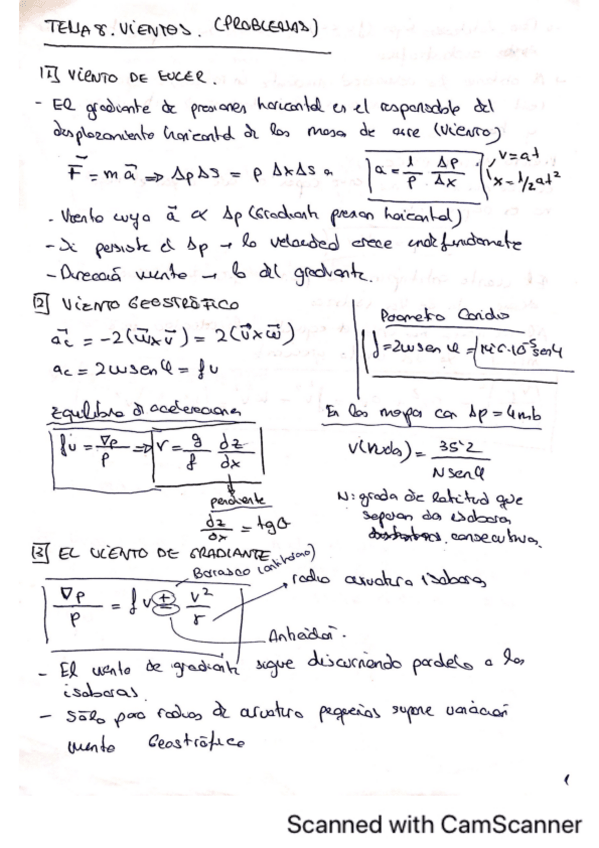 TEMA 8. VIENTOS. (PROBLEMAS)
1 VIENTO DE EULER.
- El gradiente de presiones horizontal es el responsable del
desplazamiento horizontal de las masa de aire (viento)
F = m a ⇒ ΔpΔs = ρ ΔxΔs a
a = 1/ρ · Δp/Δx
v=at
x=1/2at²
- Viento cuyo a ∝ Δp (Gradiente presion horizontal)
- Si persiste el Δp → la velocidad crece
- Dirección viento → la del gradiente.
2 VIENTO GEOSTRÓFICO
ac = -2(w x v) = 2(v x w)
ac = 2w sen φ = f v
Parametro Coriolis
f=2w sen φ =
Equilibrio de aceleraciones
fv = ∇p/ρ ⇒ v = g/f dz/dx
pendiente
dz/dx = tgθ
En los mapas con Δp = 4mb
V(nudos) = 35'2 / N sen φ
N: grados de latitud que
separan dos isobaras
consecutivas.
3 EL VIENTO DE GRADIANTE
Borrasca
∇p/ρ = f v ± v²/r
radio curvatura isobaras
- El viento de gradiante sigue discurriendo paralelo a las
isobaras.
- Sólo para radios de curvatura pequeños supone variación
viento Geostrófico
1
Scanned with CamScanner